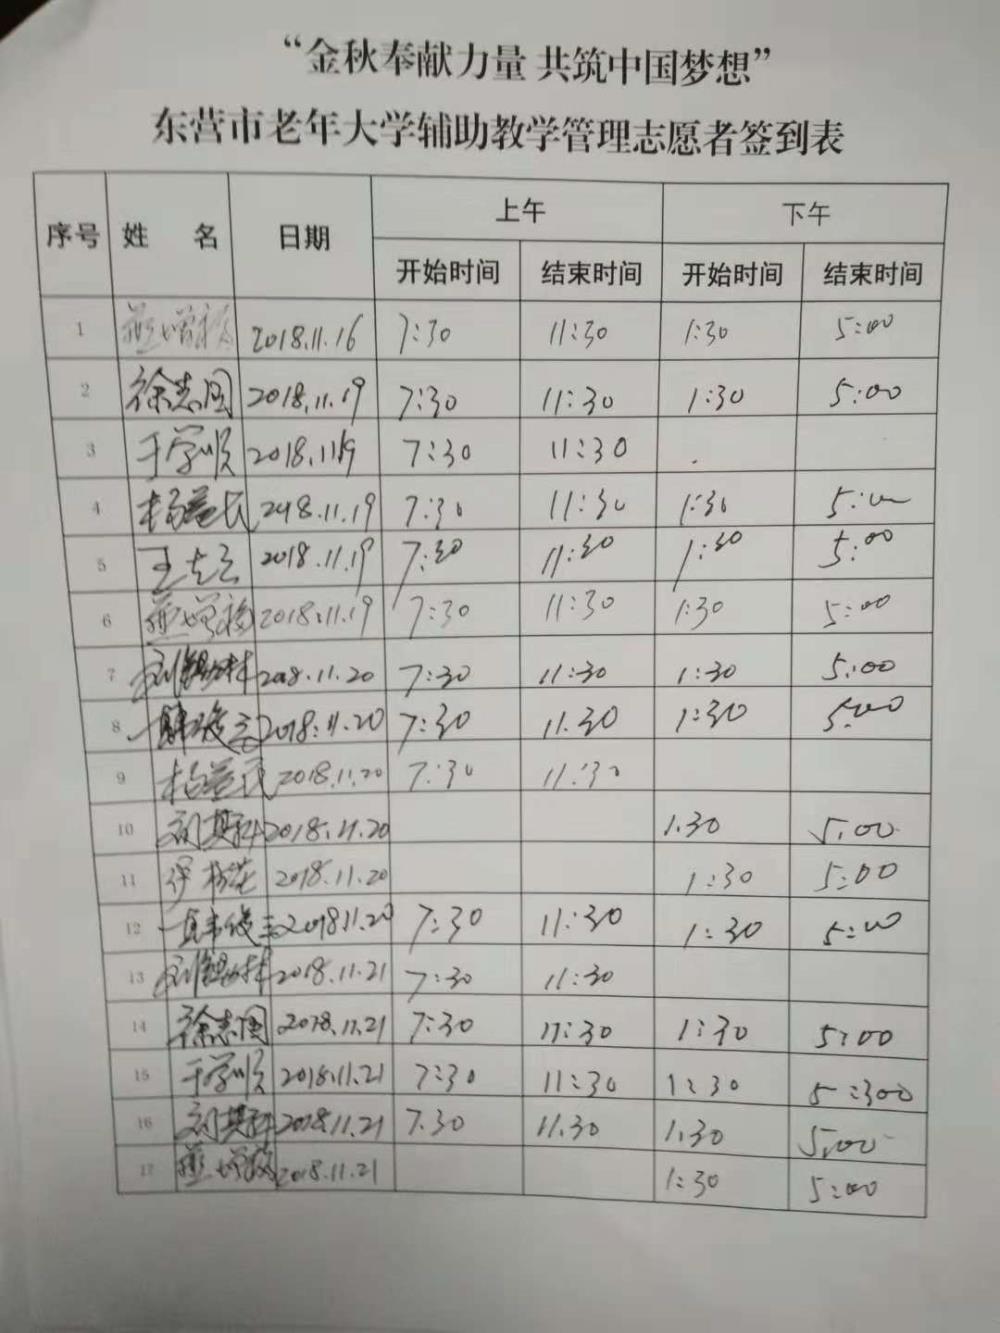 “金秋奉献力量 共筑中国梦想”
东营市老年大学辅助教学管理志愿者签到表
序号 姓 名 日期 上午 下午
开始时间 结束时间 开始时间 结束时间
1 2018.11.16 7:30 11:30 1:30 5:00
2 徐志国 2018.11.19 7:30 11:30 1:30 5:00
3 于学顺 2018.11.19 7:30 11:30
4 杨益民 2018.11.19 7:30 11:30 1:30 5:00
5 王 2018.11.19 7:30 11:30 1:30 5:00
6 2018.11.19 7:30 11:30 1:30 5:00
7 2018.11.20 7:30 11:30 1:30 5:00
8 2018.11.20 7:30 11.30 1:30 5:00
9 杨益民 2018.11.20 7:30 11:30
10 2018.11.20 1.30 5.00
11 2018.11.20 1:30 5:00
12 2018.11.20 7:30 11:30 1:30 5:00
13 2018.11.21 7:30 11:30
14 徐志国 2018.11.21 7:30 11:30 1:30 5:00
15 于学顺 2018.11.21 7:30 11:30 1:30 5:300
16 2018.11.21 7.30 11.30 1.30 5.00
17 2018.11.21 1:30 5:00